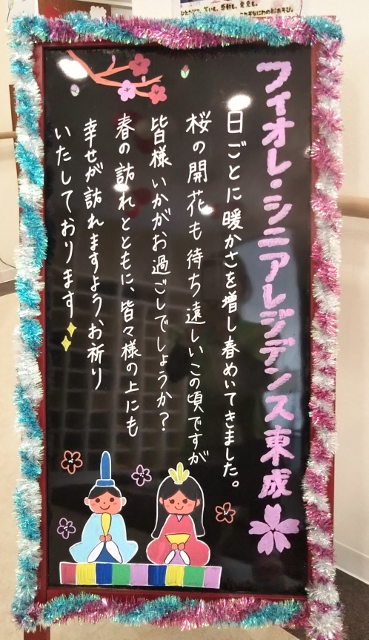 フィオレ・シニアレジデンス東成
日ごとに暖かさを増し春めいてきました。
桜の開花も待ち遠しいこの頃ですが
皆様いかがお過ごしでしょうか?
春の訪れとともに、皆々様の上にも
幸せが訪れますよう、お祈り
いたしております